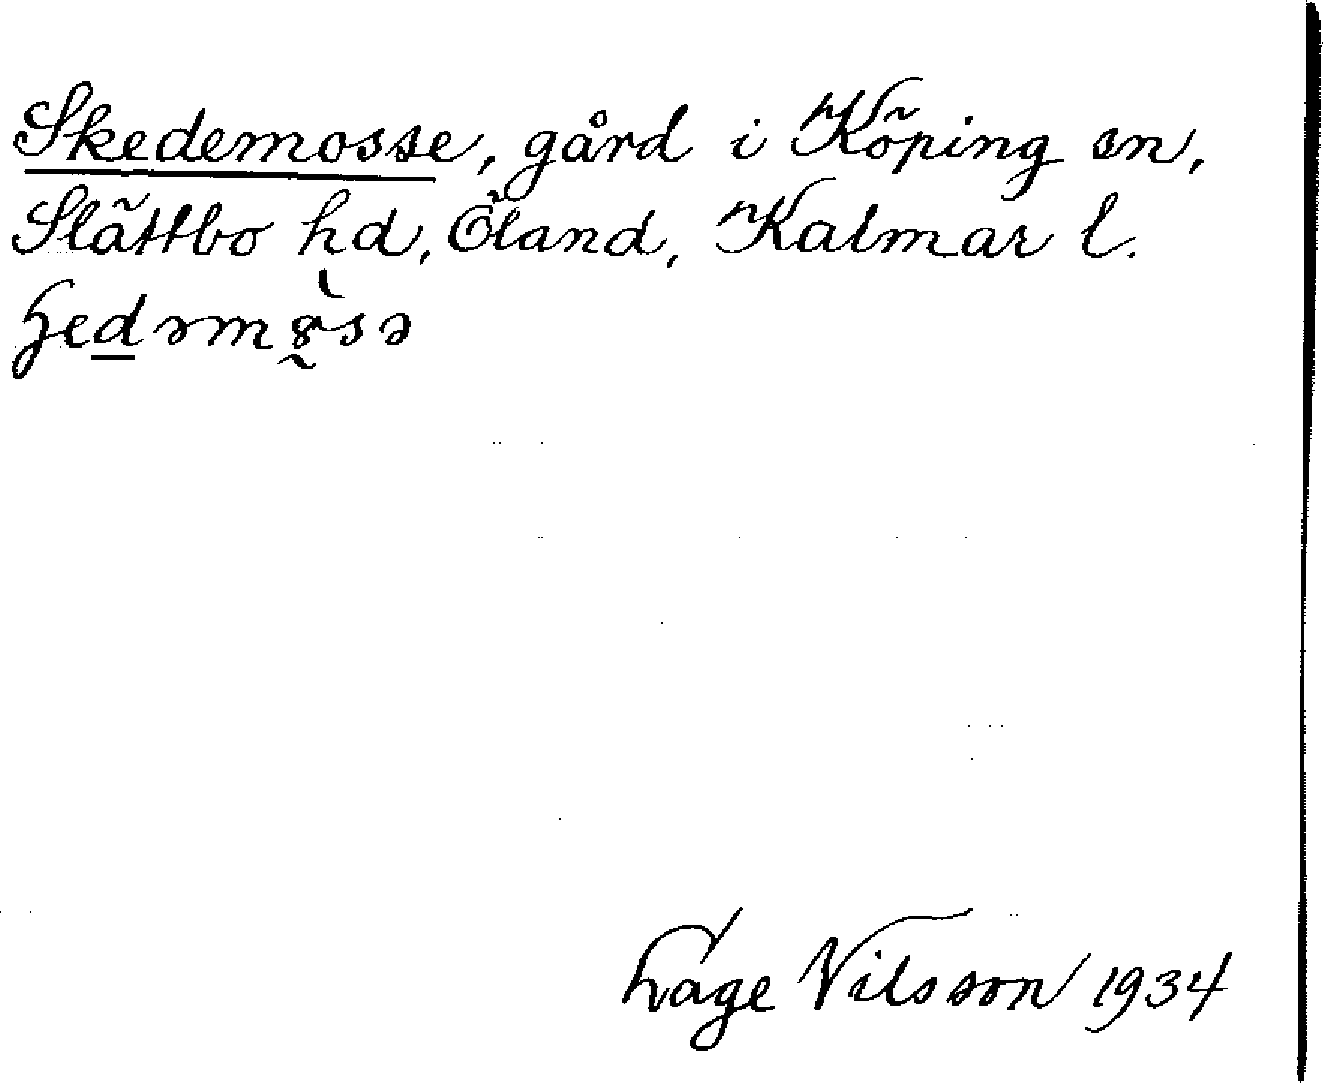 Skedemosse, gård i Köping sn,
Slättbo hd, Öland, Kalmar l.
Tage Nilsson 1934